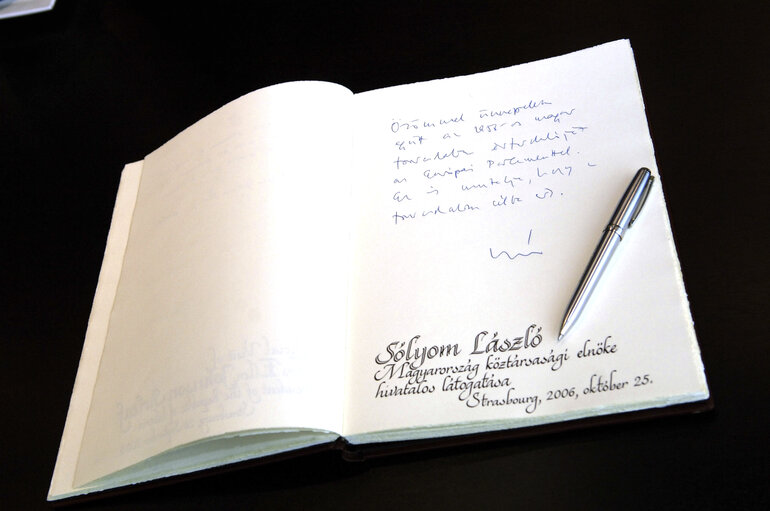 Örömmel ünnepelem
együtt az 1956-os magyar
forradalom évfordulóját
az Európai Parlamenttel.
Ez is mutatja, hogy a
forradalom célba ért.
Sólyom László
Magyarország köztársasági elnöke
hivatalos látogatása
Strasbourg, 2006, október 25.